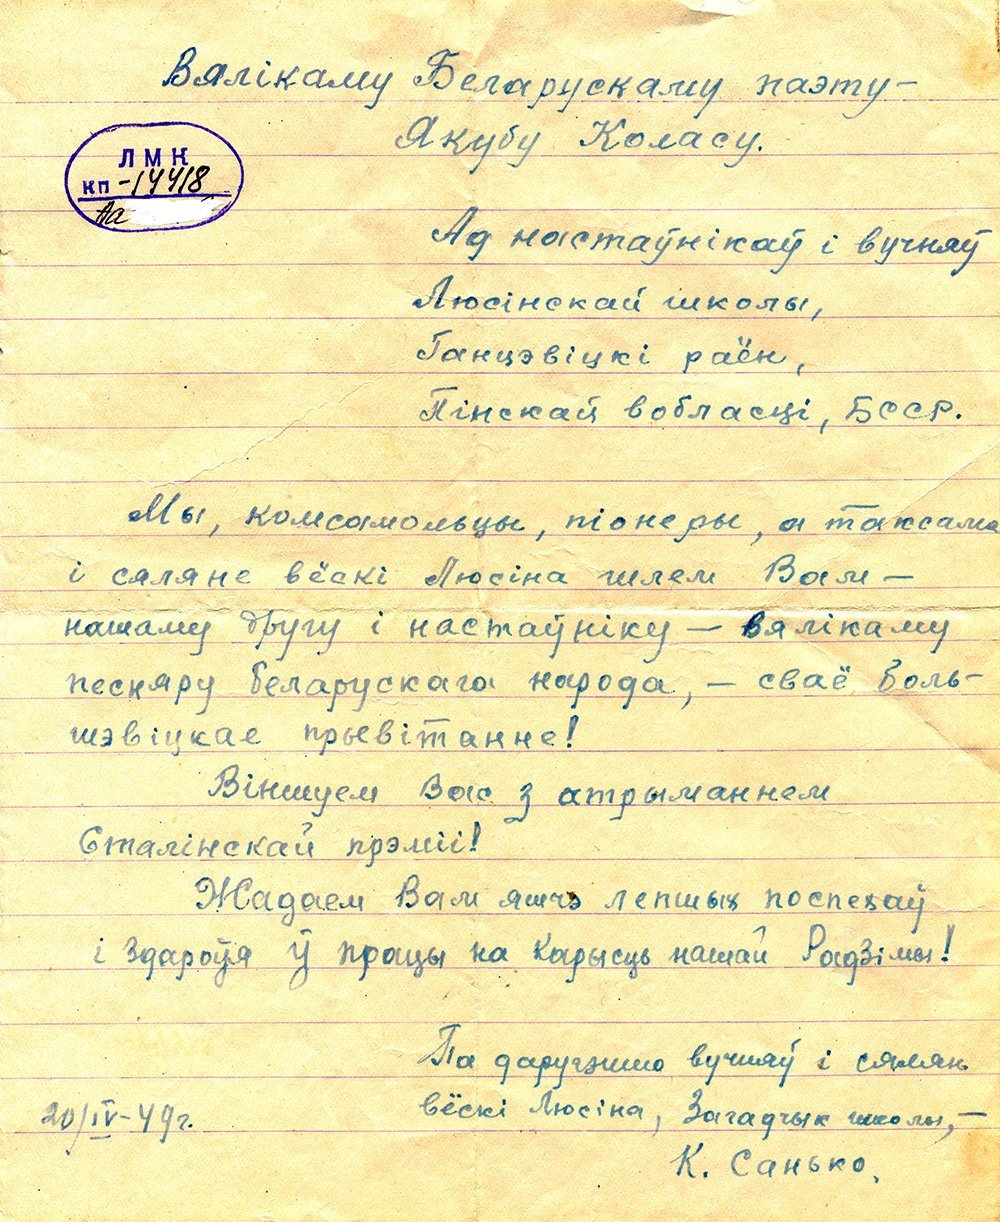 Вялікаму Беларускаму паэту –
Якубу Коласу.
ЛМК
КП -14418
Аа
Ад настаўнікаў і вучняў
Люсінскай школы,
Ганцэвіцкі раён,
Пінскай вобласці, БССР.
Мы, комсамольцы, піонеры, а таксама
і сяляне вёскі Люсіна шлем Вам –
нашаму другу і настаўніку – вялікаму
песняру беларускага народа, – сваё боль-
шэвіцкае прывітанне!
Віншуем Вас з атрыманнем
Сталінскай прэміі!
Жадаем Вам яшчэ лепшых поспехаў
і здароўя ў працы на карысць нашай Радзімы!
Па даручэнню вучняў і сялян
вёскі Люсіна, Загадчык школы, –
20/IV-49 г.
К. Санько.